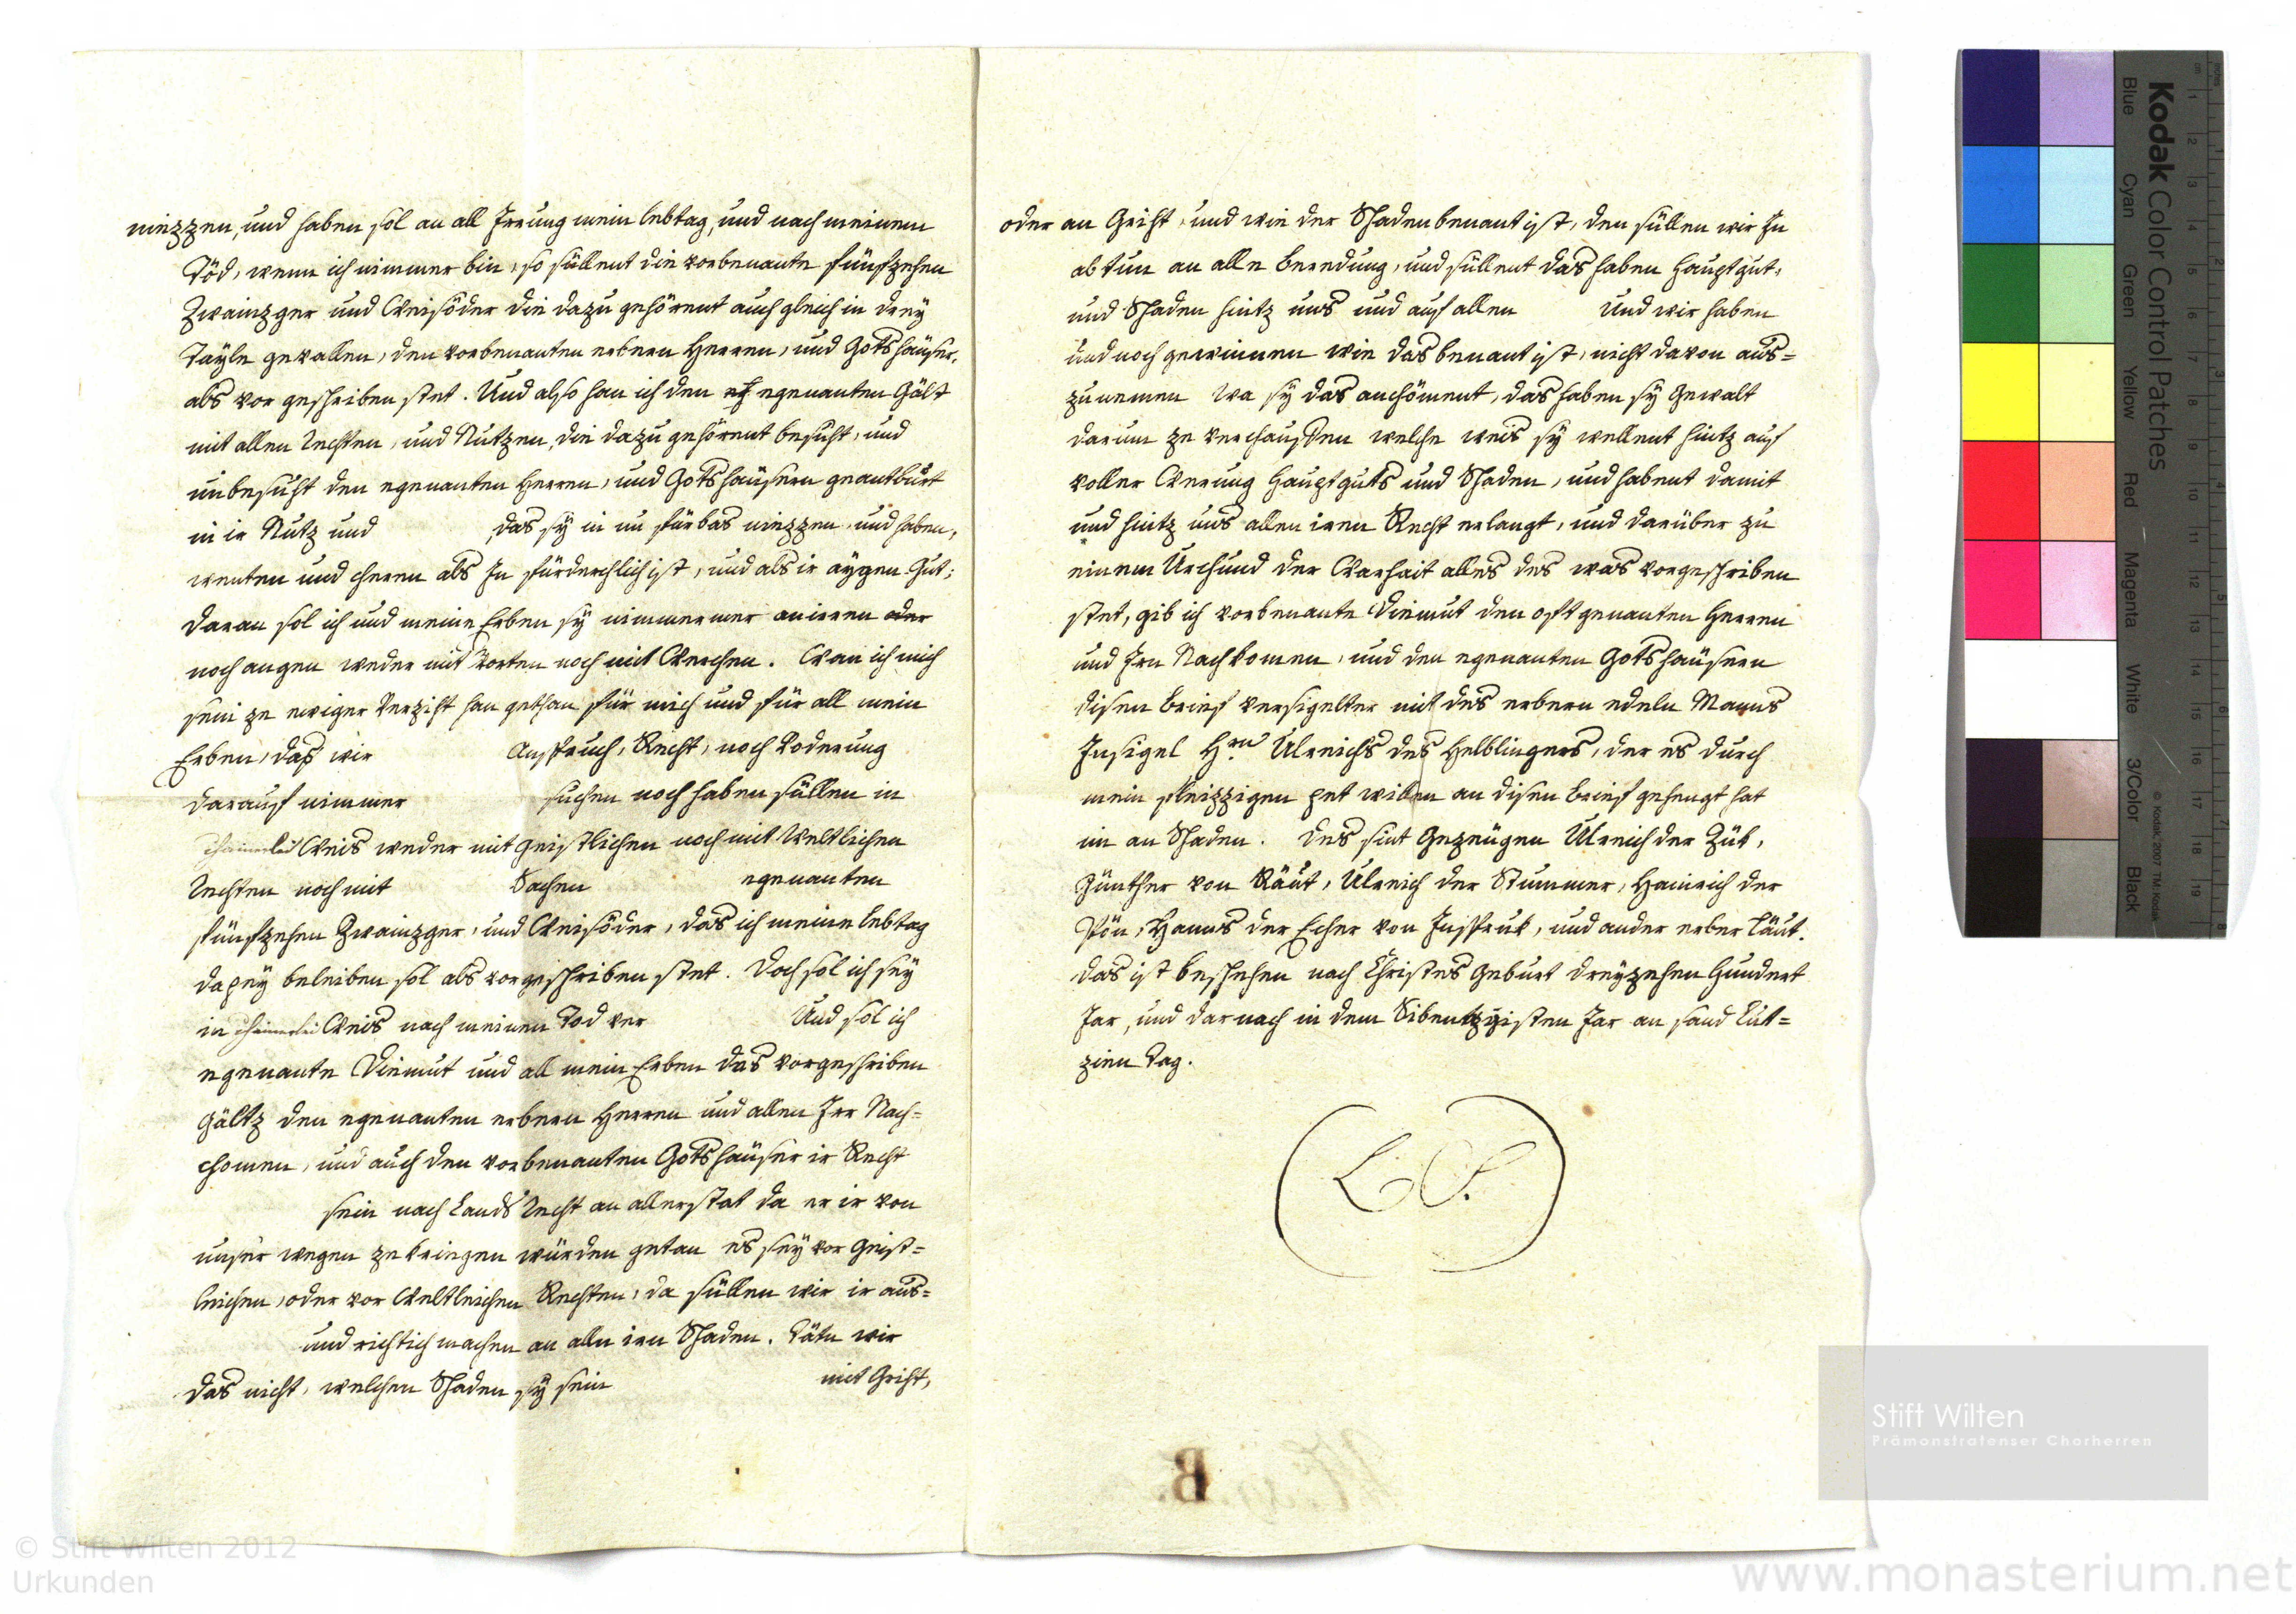 niezzen, und haben sol an all Irrung mein lebtag, und nach meinem
Tod, wenn ich nimmer bin, so süllent die vorbenante fünfzehen
Zwainzger und Weisöder die dazu gehörent auch gleich in drey
Tayle gevallen, den vorbenanten erbern Herren, und Gotshäuser,
als vor geschriben stet. Und also han ich den egenanten Gält
mit allen Rechten, und Nutzen, die dazu gehörent besucht, und
unbesucht den egenanten Herren, und Gotshäusern geantburt
in ir Nutz und das sy in nu fürbas niezzen, und haben,
wenten und cheren als In fürderchlich ist, und als ir aygen Gut;
daran sol ich und meine Erben sy nimmermer an irren oder
noch angen weder mit Worten noch mit Werchen. Wan ich mich
sein ze ewiger Verzicht han gethan für mich und für all mein
Erben, das wir Anspruch, Recht, noch Voderung
darauf nimmer suchen noch haben süllen in
chainerlei Weis weder mit geistlichen noch mit Weltlichen
Rechten noch mit Sachen egenanten
fünfzehen Zwainzger, und Weisöder, das ich meine lebtag
dapey beleiben sol als vorgeschriben stet. Doch sol ich sey
in chainerlei Weis nach meinen Tod ver Und sol ich
egenante Diemut und all mein Erben das vorgeschriben
Gältz den egenanten erbern Herren und allen Irr Nach=
chomen, und auch den vorbenanten Gotshäuser ir Recht
sein nach Lands Recht an aller stat da er ir von
unser wegen ze kriegen würden getan es sey vor Geist=
leichen, oder vor Weltleichen Rechten, da süllen wir ir aus=
und richtich machen an alln irn Schaden. Tätn wir
das nicht, welchen Schaden sy sein mit Gricht,
oder an Gricht, und wie der Schaden benant ist, den süllen wir In
abtun an alle beredung, und süllent das haben Hauptgut,
und Schaden hintz uns und auf allen Und wir haben
und noch gewinnen wie das benant ist, nicht davon aus=
zunemen wa sy das anchöment, das haben sy Gewalt
darum ze verchauffen welche weis sy wellent hintz auf
voller Werung Hauptguts und Schaden, und habent damit
und hintz uns allen iren Recht erlangt, und darüber zu
einem Urchund der Warhait alles des was vorgeschriben
stet, gib ich vorbenante Diemut den oftgenanten Herren
und Irn Nachkomen, und den egenanten Gotshäusern
disen brief versigelter mit des erbern edeln Manns
Insigel Hrn Ulreichs des Helblingers, der es durch
mein fleizzigen pet willen an disen brief gehengt hat
im an Schaden. Des sint Gezeugen Ulreich der Zük,
Günther von Räut, Ulreich der Stummer, Hainrich der
Pön, Hanns der Echer von Insspruk, und ander erber Läut.
das ist beschehen nach Christes Geburt dreyzehen Hundert
Jar, und darnach in dem Sibentzgisten Jar an sand Lut=
zien Tag.
L. S.
B.
Stift Wilten
Prämonstratenser Chorherren
© Stift Wilten 2012
Urkunden
www.monasterium.net
Kodak Color Control Patches
© Kodak 2007 TM: Kodak
Blue Cyan Green Yellow Red Magenta White 3/Color Black